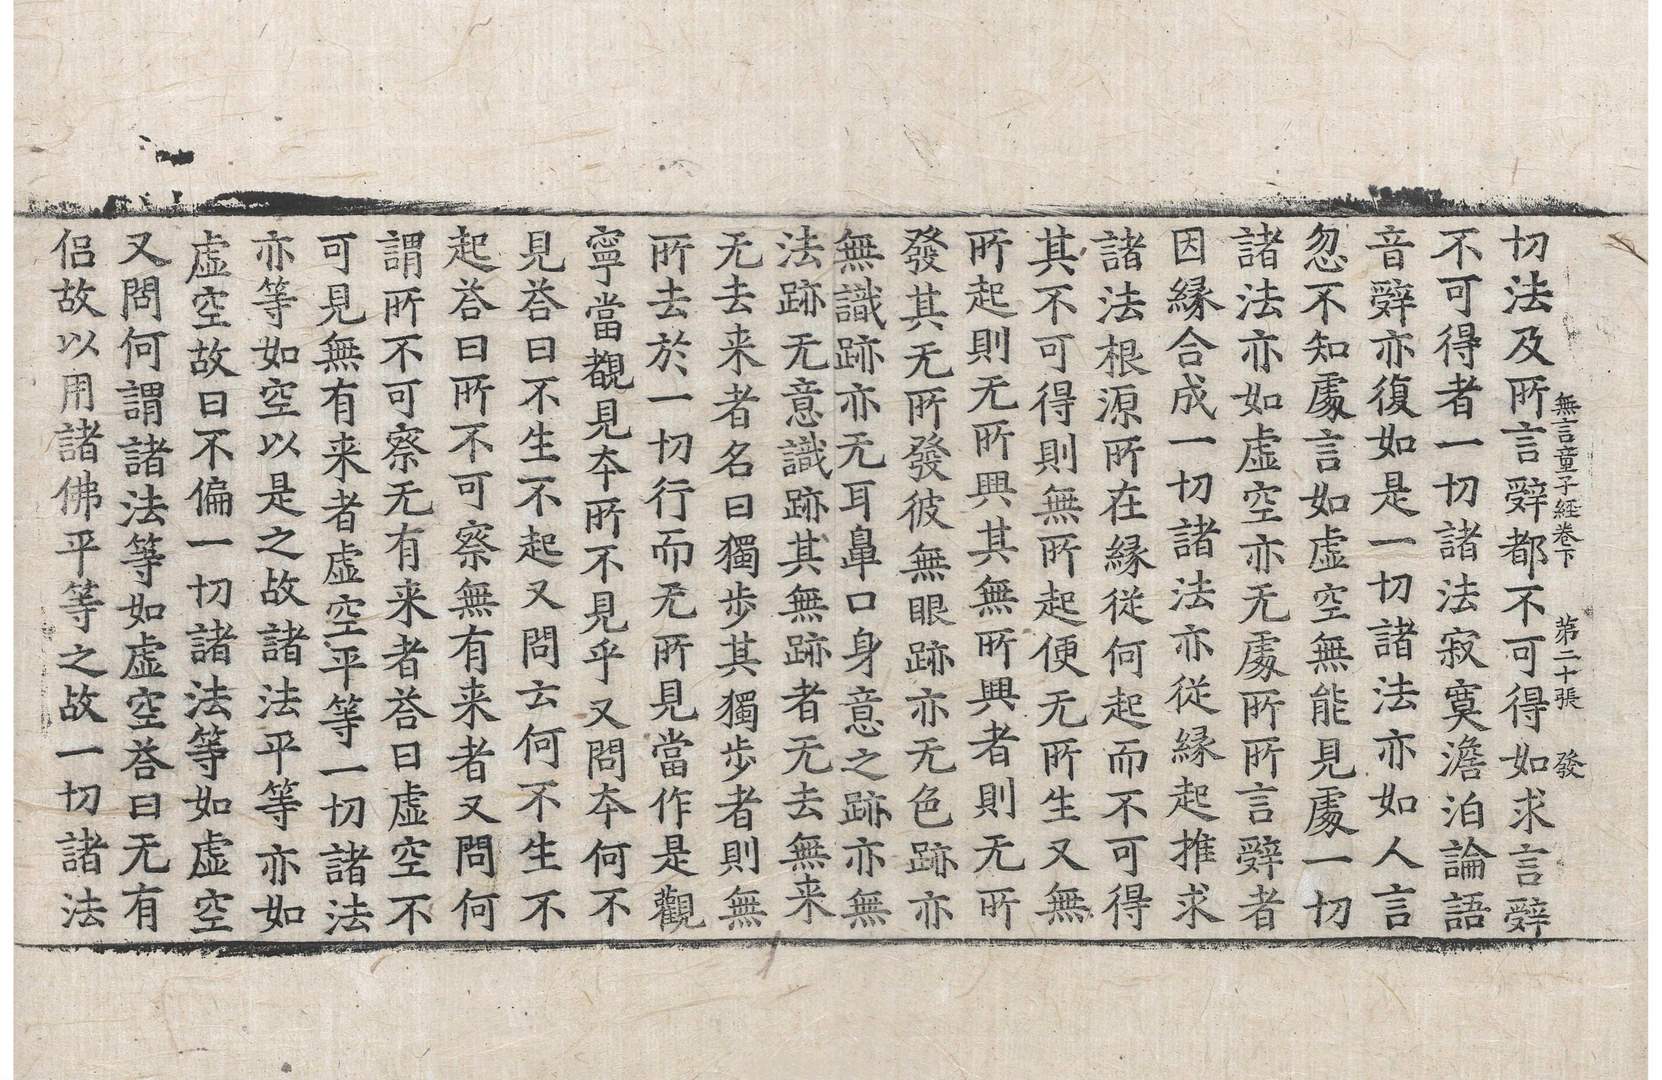 無言童子経卷下 第二十張 發
切法及所言辝都不可得如求言辝
不可得者一切諸法寂寞澹泊論語
音辝亦復如是一切諸法亦如人言
忽不知處言如虛空無能見處一切
諸法亦如虛空亦无處所所言辝者
因縁合成一切諸法亦從縁起推求
諸法根源所在縁從何起而不可得
其不可得則無所起便无所生又無
所起則无所興其無所興者則无所
發其无所發彼無眼跡亦无色跡亦
無識跡亦无耳鼻口身意之跡亦無
法跡无意識跡其無跡者无去無来
无去来者名曰獨步其獨步者則無
所去於一切行而无所見當作是觀
寧當覩見夲所不見乎又問夲何不
見荅曰不生不起又問云何不生不
起荅曰所不可察無有来者又問何
謂所不可察无有来者荅曰虛空不
可見無有来者虛空平等一切諸法
亦等如空以是之故諸法平等亦如
虛空故曰不偏一切諸法等如虛空
又問何謂諸法等如虛空荅曰无有
侣故以用諸佛平等之故一切諸法